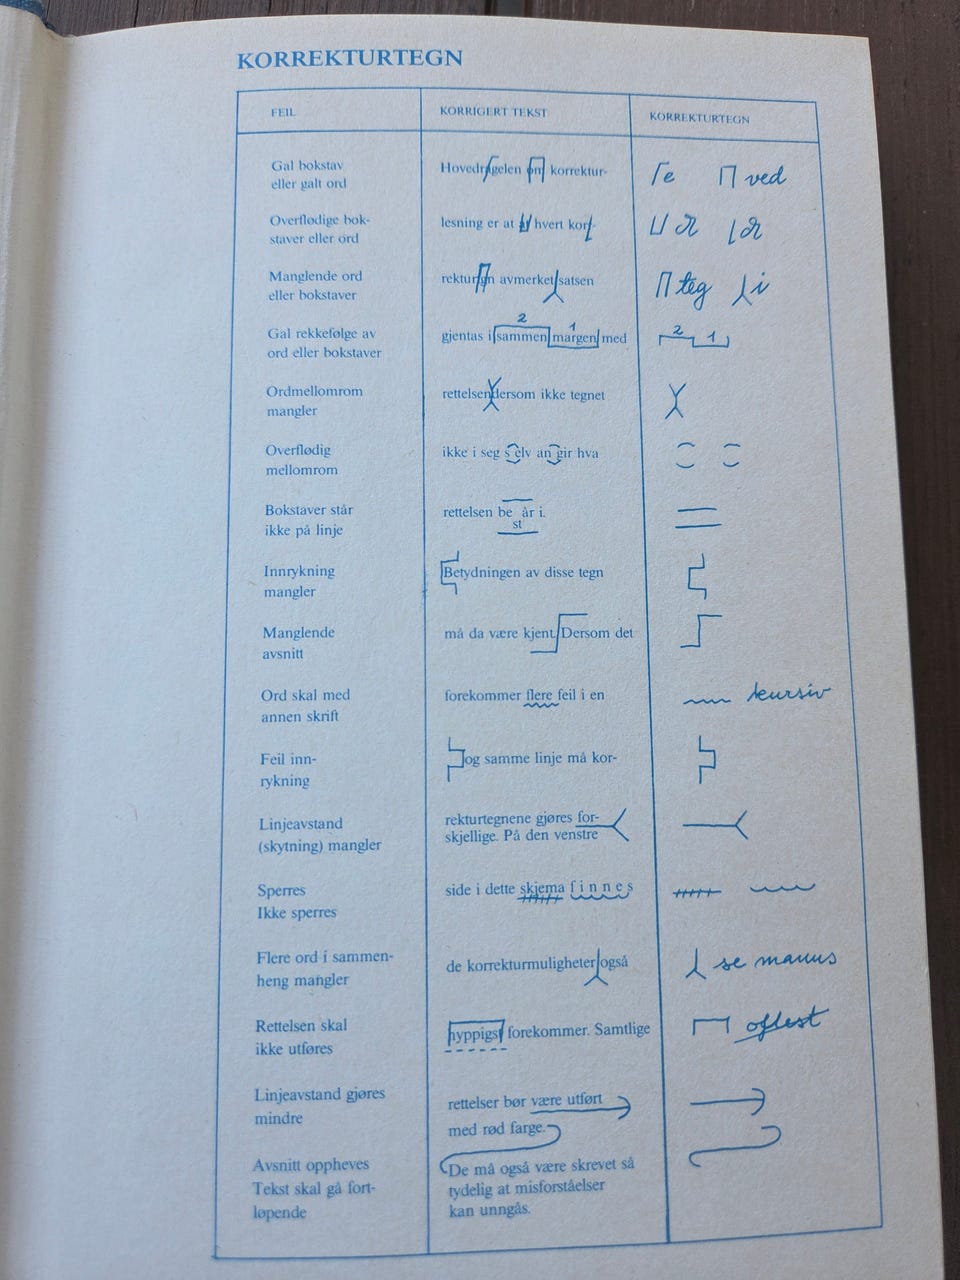 KORREKTURTEGN
FEIL KORRIGERT TEKST KORREKTURTEGN
Gal bokstav
eller galt ord
Hovedrågelen om korrektur-
e ved
Overflødige bok-
staver eller ord
lesning er at hvert kor-
Manglende ord
eller bokstaver
rekturgn avmerket satsen
teg i
Gal rekkefølge av
ord eller bokstaver
2 1
gjentas i sammen margen med
2 1
Ordmellomrom
mangler
rettelsen dersom ikke tegnet
Overflødig
mellomrom
ikke i seg s elv an gir hva
Bokstaver står
ikke på linje
rettelsen be år i.
st
Innrykning
mangler
Betydningen av disse tegn
Manglende
avsnitt
må da være kjent. Dersom det
Ord skal med
annen skrift
forekommer flere feil i en
kursiv
Feil inn-
rykning
og samme linje må kor-
Linjeavstand
(skytning) mangler
rekturtegnene gjøres for-
skjellige. På den venstre
Sperres
Ikke sperres
side i dette skjema finnes
Flere ord i sammen-
heng mangler
de korrekturmuligheter også
se manus
Rettelsen skal
ikke utføres
hyppigst forekommer. Samtlige
oftest
Linjeavstand gjøres
mindre
rettelser bør være utført
med rød farge.
Avsnitt oppheves
Tekst skal gå fort-
løpende
De må også være skrevet så
tydelig at misforståelser
kan unngås.